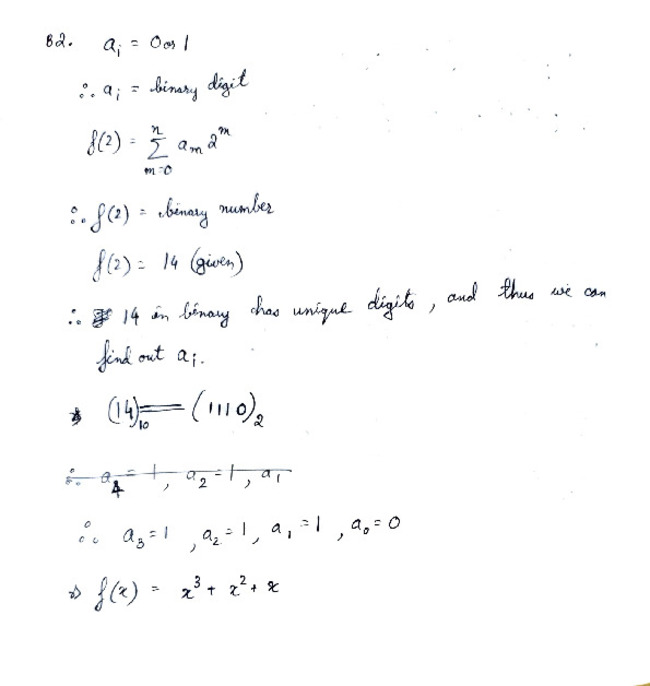 B2. aᵢ = 0 or 1
∴ aᵢ = binary digit
f(2) = Σₘ₌₀ⁿ aₘ 2ᵐ
∴ f(2) = binary number
f(2) = 14 (given)
∴ 14 in binary has unique digits, and thus we can
find out aᵢ.
(14)₁₀ = (1110)₂
∴ a₄ = 1, a₂ = 1, a₁
∴ a₃ = 1, a₂ = 1, a₁ = 1, a₀ = 0
⇒ f(x) = x³ + x² + x